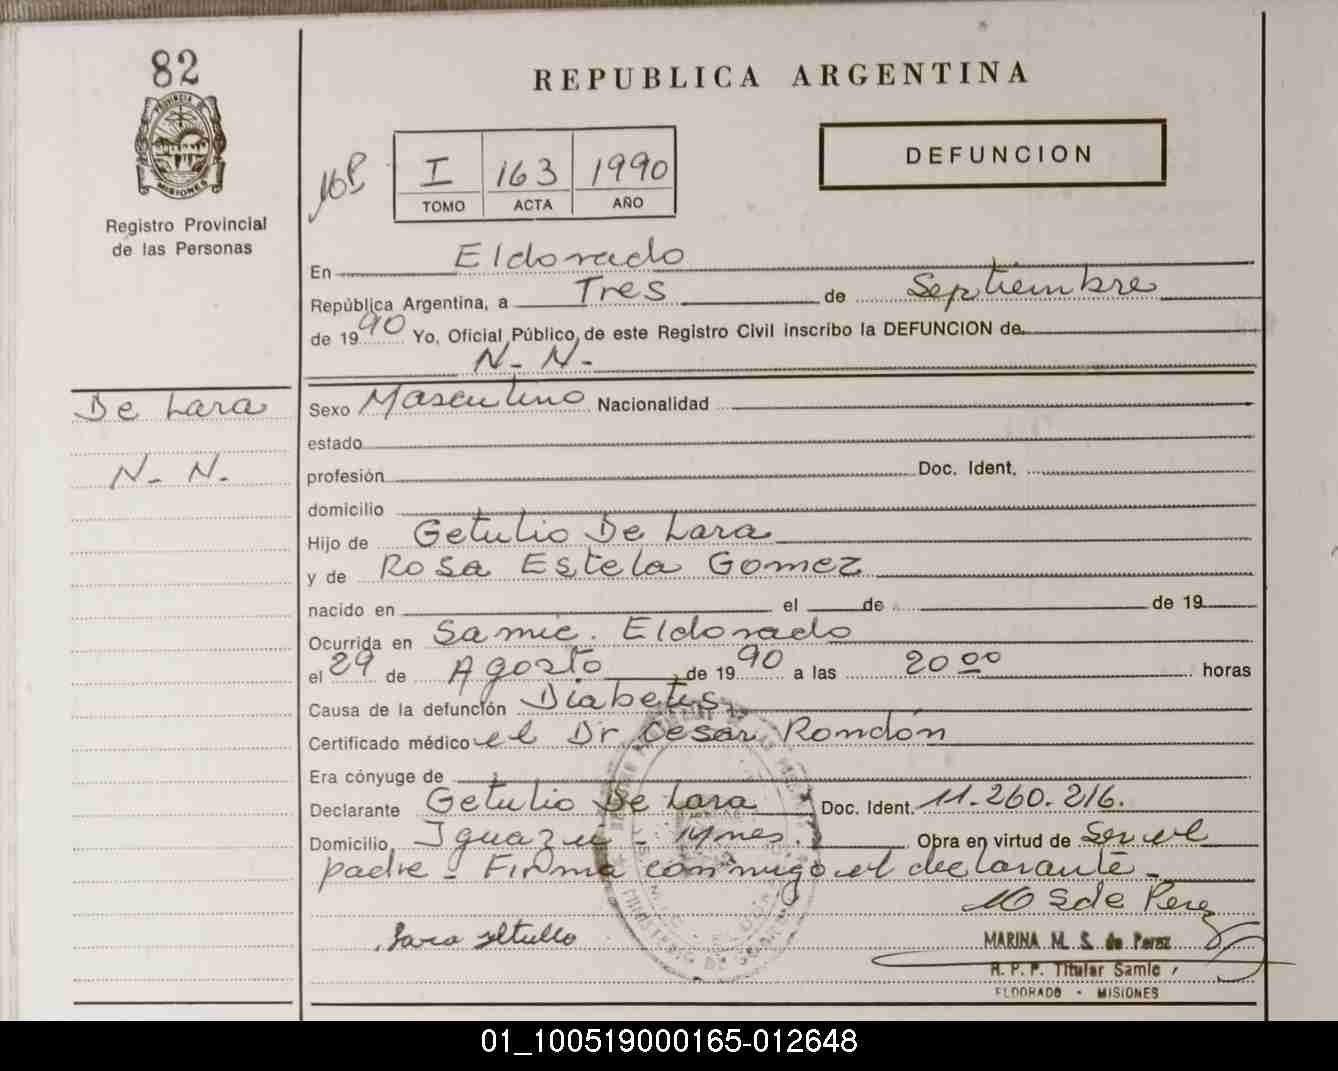 82
REPUBLICA ARGENTINA
PROVINCIA DE
MISIONES
Registro Provincial
de las Personas
I 163 1990
TOMO ACTA AÑO
DEFUNCION
En Eldorado
República Argentina, a Tres de Septiembre
de 1990 Yo, Oficial Público, de este Registro Civil inscribo la DEFUNCION de
N. N.
De Lara
N. N.
Sexo Masculino Nacionalidad
estado
profesión Doc. Ident.
domicilio
Hijo de Getulio De Lara
y de Rosa Estela Gomez
nacido en el de de 19
Ocurrida en Samic. Eldorado
el 29 de Agosto de 1990 a las 20 00 horas
Causa de la defunción Diabetis
Certificado médico el Dr Cesar Rondón
Era cónyuge de
Declarante Getulio De Lara Doc. Ident. 11.260.216.
Domicilio Iguazú Mnes. Obra en virtud de Ser el
padre - Firma conmigo el declarante -
S de Perez
MARINA M. S. de Perez
R. P. P. Titular Samic
ELDORADO - MISIONES
01_100519000165-012648